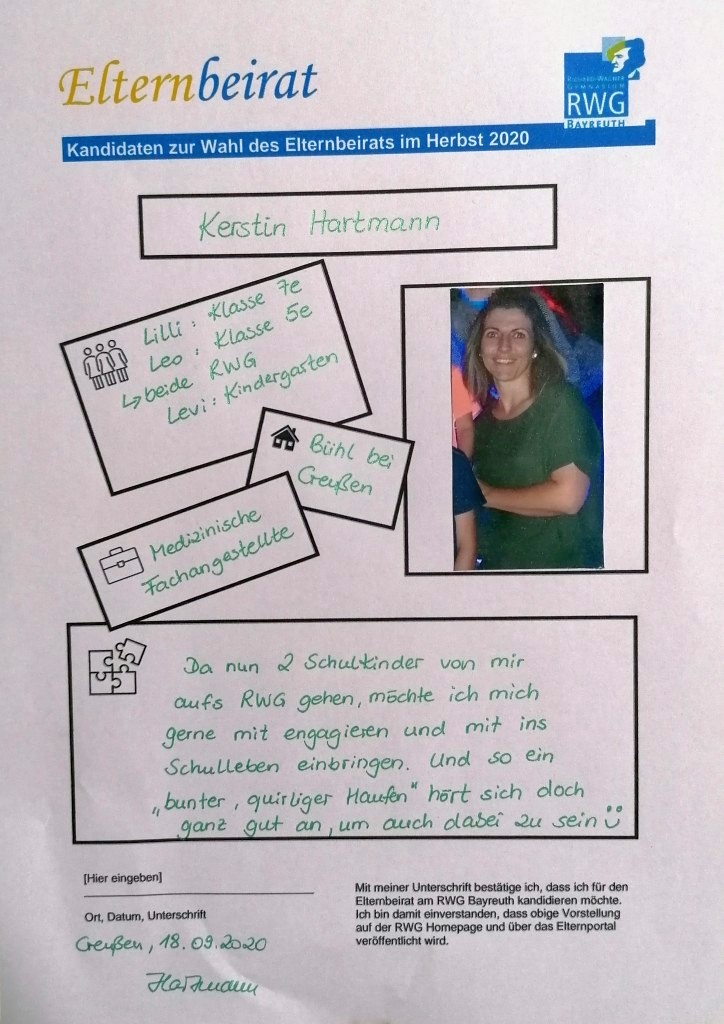 Elternbeirat
RICHARD-WAGNER
GYMNASIUM
RWG
BAYREUTH
Kandidaten zur Wahl des Elternbeirats im Herbst 2020
Kerstin Hartmann
Lilli : Klasse 7e
Leo : Klasse 5e
↳ beide RWG
Levi : Kindergarten
Bühl bei
Creußen
Medizinische
Fachangestellte
Da nun 2 Schulkinder von mir
aufs RWG gehen, möchte ich mich
gerne mit engagieren und mit ins
Schulleben einbringen. Und so ein
„bunter, quirliger Haufen" hört sich doch
ganz gut an, um auch dabei zu sein ü
[Hier eingeben]
Ort, Datum, Unterschrift
Creußen, 18.09.2020
Hartmann
Mit meiner Unterschrift bestätige ich, dass ich für den
Elternbeirat am RWG Bayreuth kandidieren möchte.
Ich bin damit einverstanden, dass obige Vorstellung
auf der RWG Homepage und über das Elternportal
veröffentlicht wird.